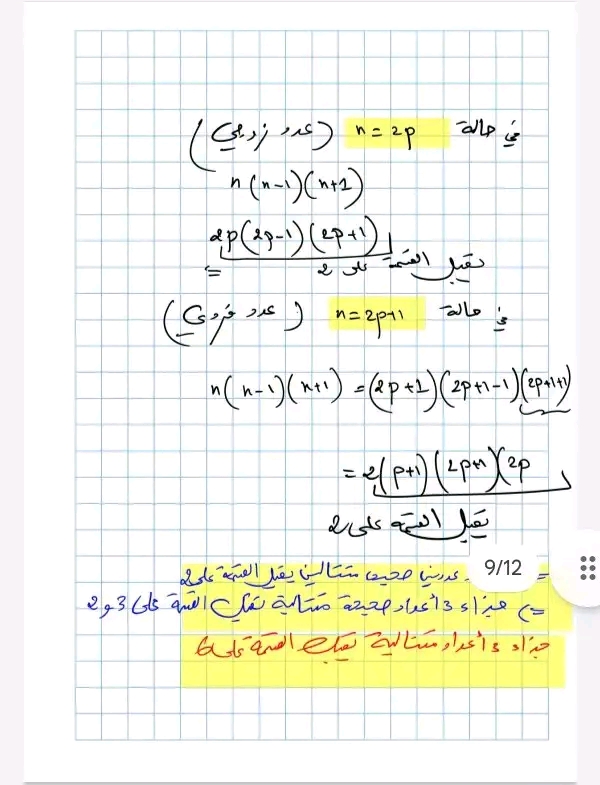 في حالة n = 2p (عدد زوجي)
n(n-1)(n+1)
2p(2p-1)(2p+1)
= تقبل القسمة على 2
في حالة n = 2p+1 (عدد فردي)
n(n-1)(n+1) = (2p+1)(2p+1-1)(2p+1+1)
= 2(p+1)(2p+1)(2p
يقبل القسمة على 2
= عددين صحيحين متتاليين يقبل القسمة على 2
9/12
=> جداء 3 أعداد صحيحة متتالية تقبل القسمة على 3 و 2
جداء 3 أعداد متتالية تقبل القسمة على 6